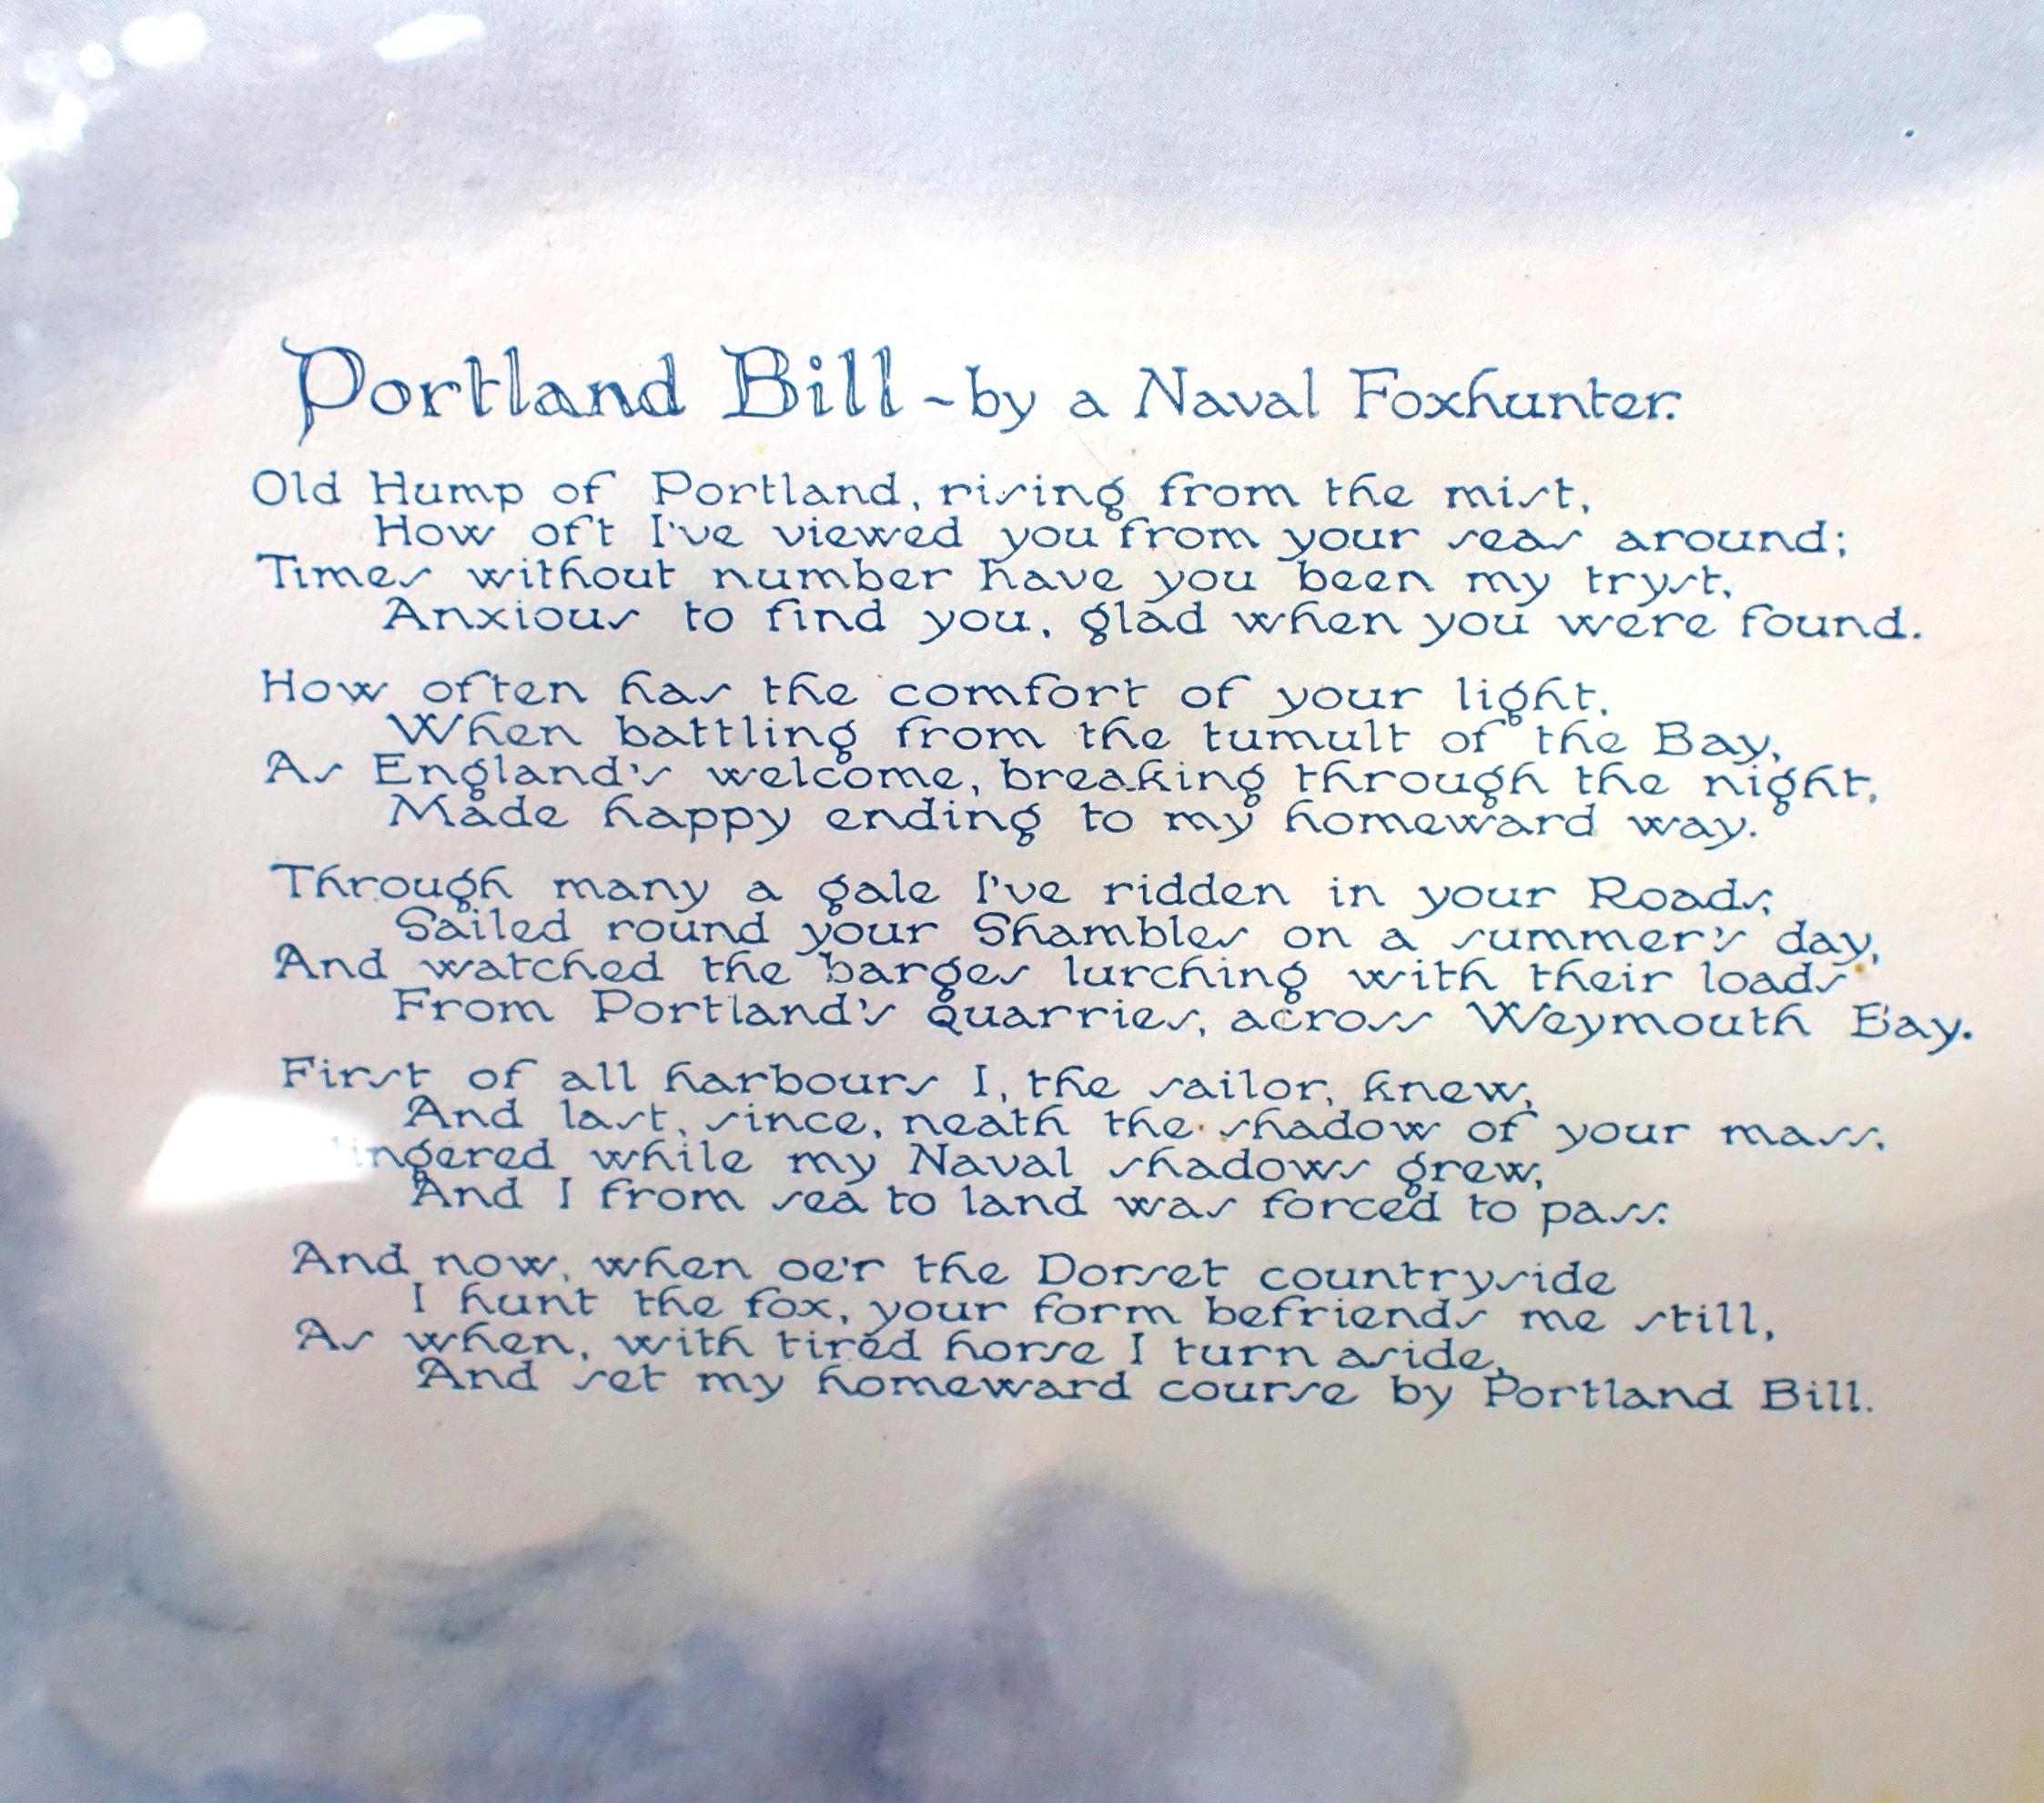 Portland Bill ~ by a Naval Foxhunter.
Old Hump of Portland, rising from the mist,
How oft I've viewed you from your seas around;
Times without number have you been my tryst,
Anxious to find you, glad when you were found.
How often has the comfort of your light,
When battling from the tumult of the Bay,
As England's welcome, breaking through the night,
Made happy ending to my homeward way.
Through many a gale I've ridden in your Roads;
Sailed round your Shambles on a summer's day,
And watched the barges lurching with their loads
From Portland's Quarries, across Weymouth Bay.
First of all harbours I, the sailor, knew,
And last, since, neath the shadow of your mass,
while my Naval shadows grew,
And I from sea to land was forced to pass.
And now, when oe'r the Dorset countryside
I hunt the fox, your form befriends me still,
As when, with tired horse I turn aside,
And set my homeward course by Portland Bill.